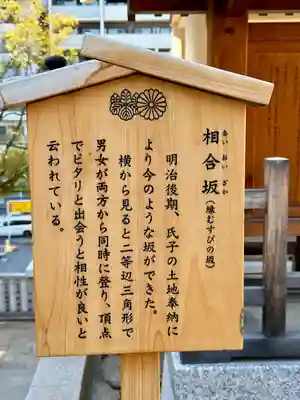 相合坂（縁むすびの坂）
あい おい ざか
明治後期、氏子の土地奉納に
より今のような坂ができた。
横から見ると二等辺三角形で
男女が両方から同時に登り、頂点
でピタリと出会うと相性が良いと
云われている。